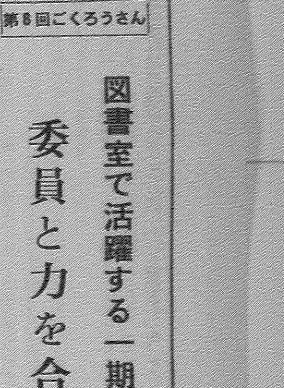 第8回ごくろうさん
図書室で活躍する一期
委員と力を合